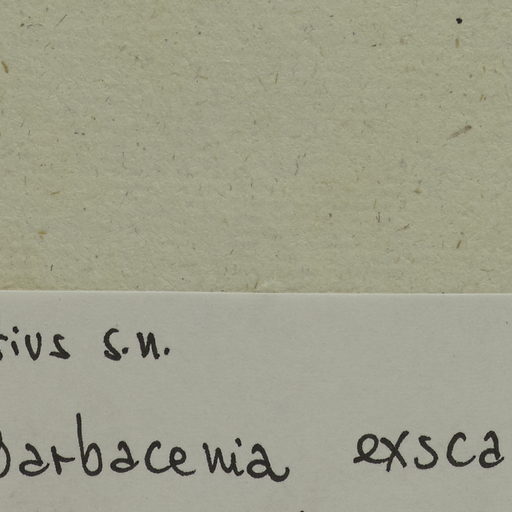 sius s.n.
Barbacenia exsca